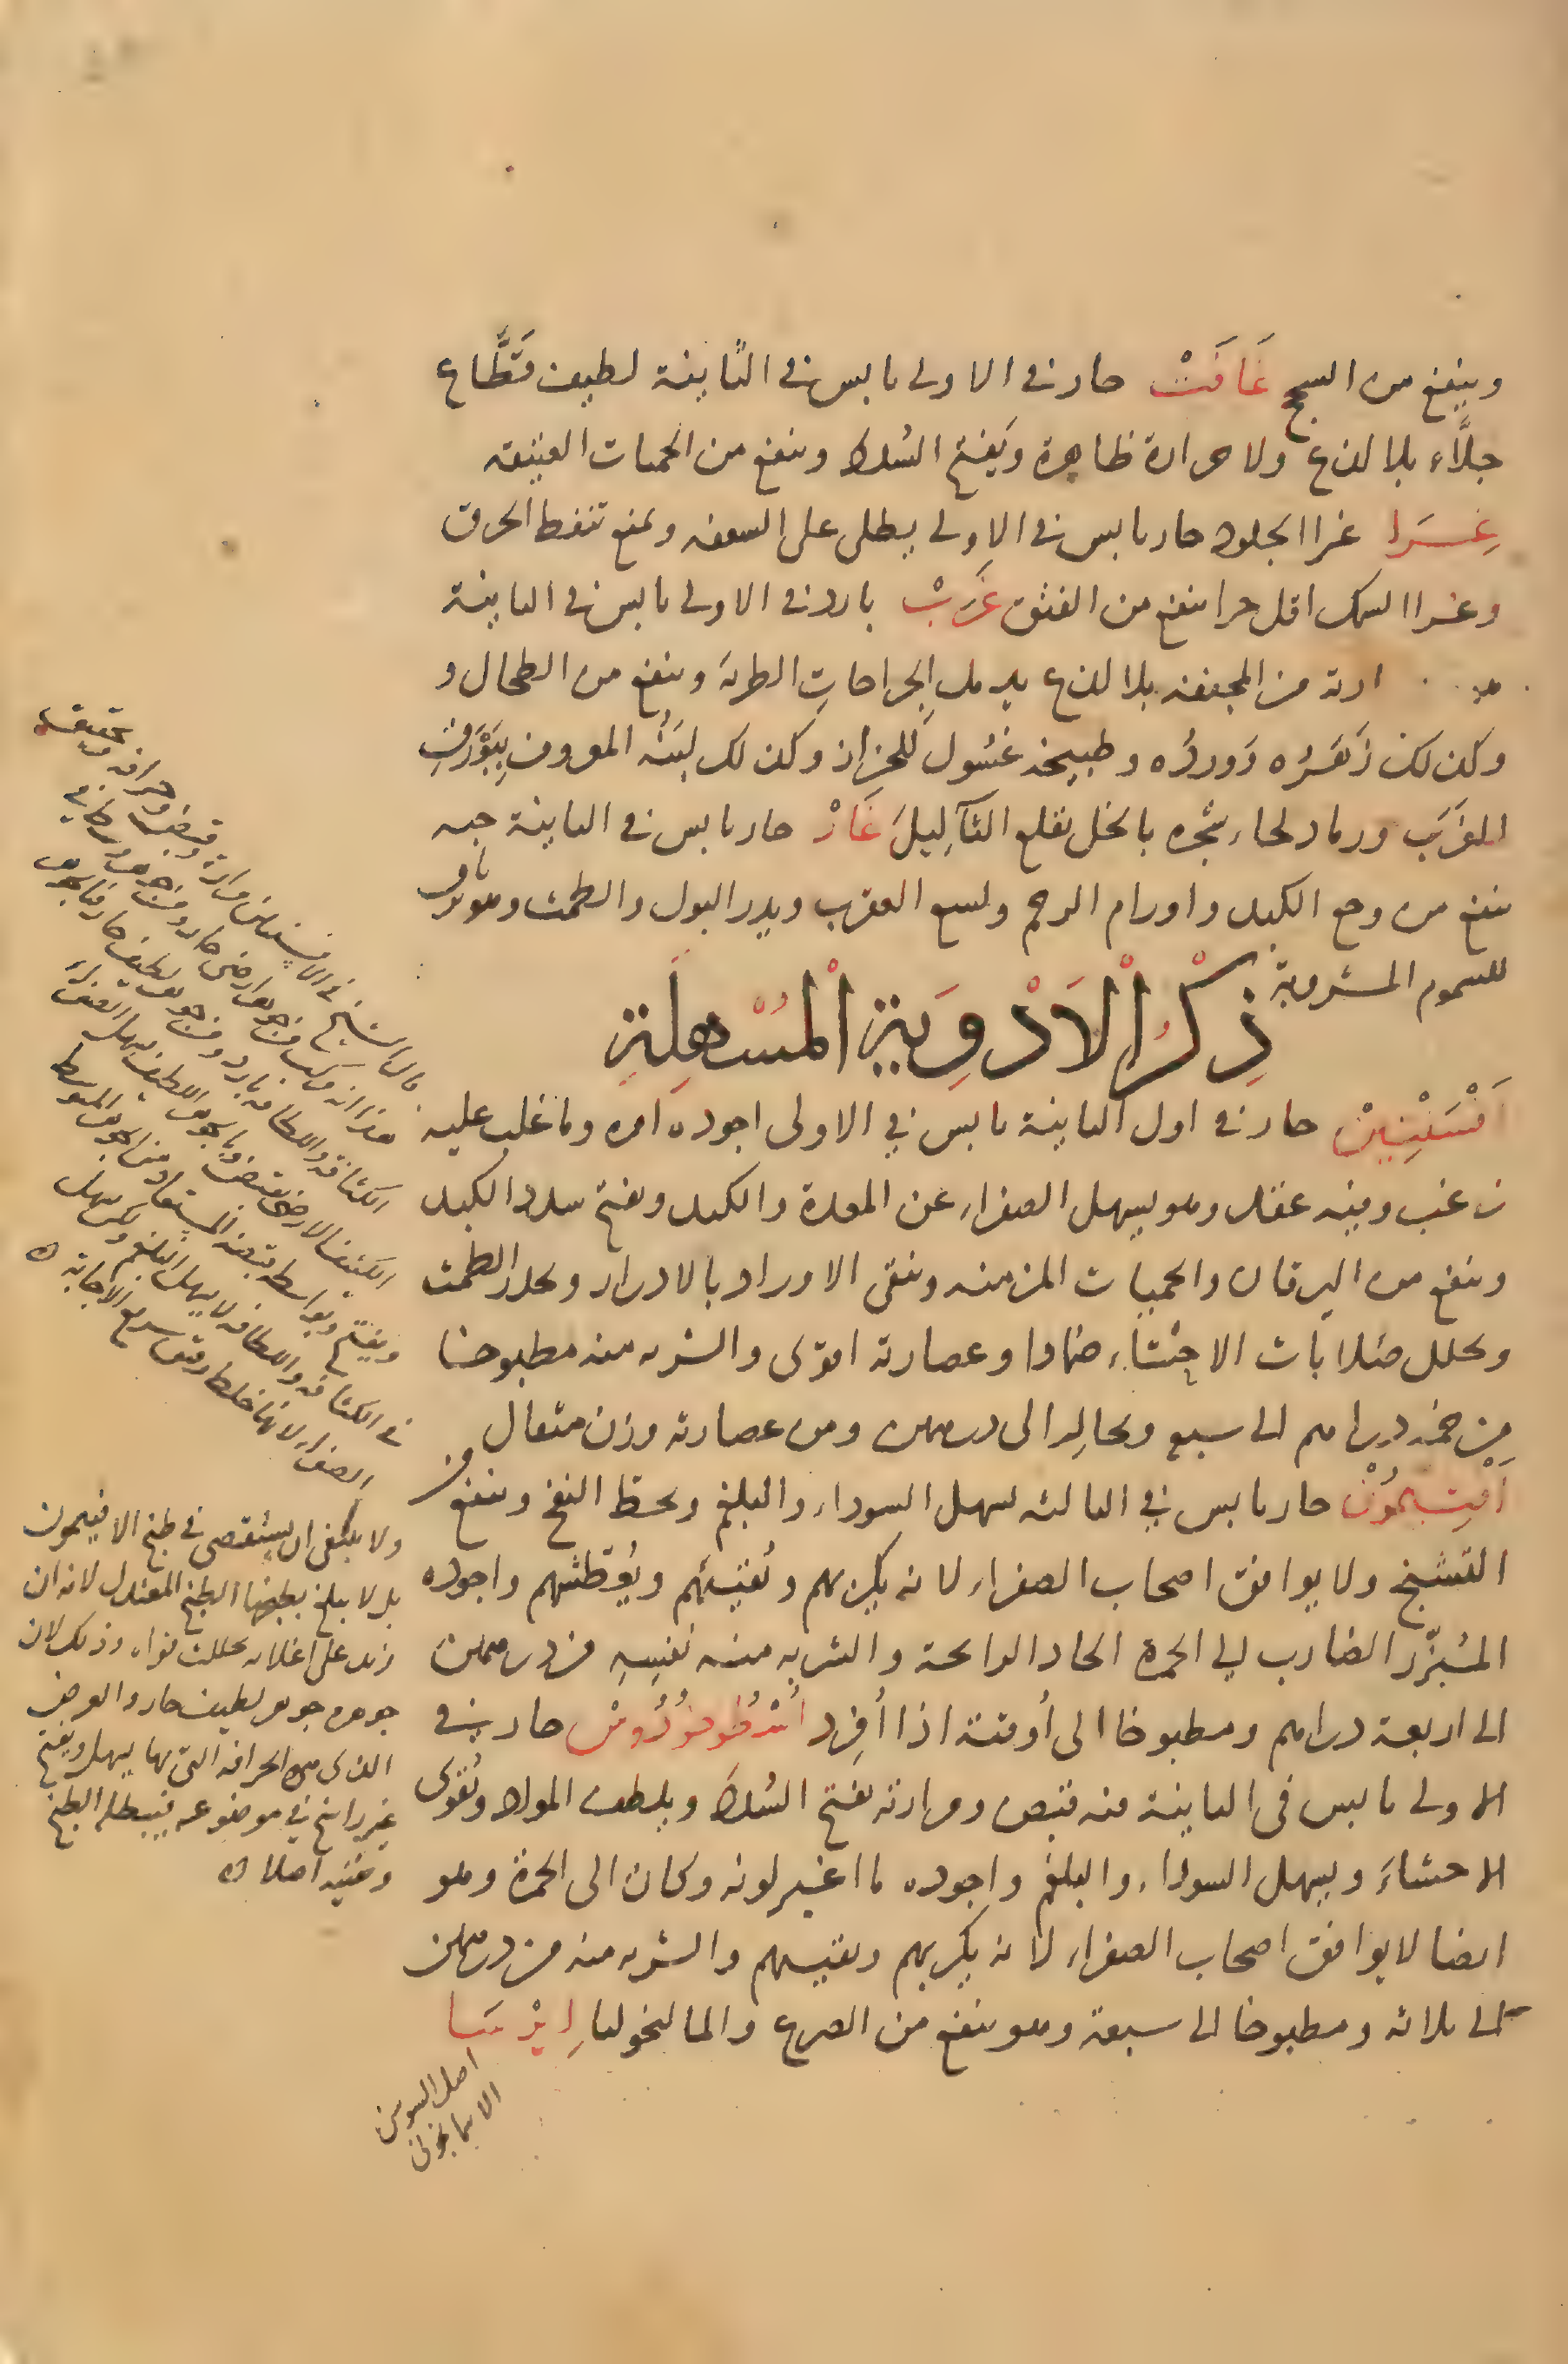 وينفع من السحج غَافَتْ حار في الاولى يابس في الثانية لطيف قَطَّاع
جلَّاء بلا لذع ولا حرارة ظاهرة ويَفتح السُدد وينفع من الحميات العتيقة
غِرَا غرا الجلود حار يابس في الاولى يطلى على السعفة ويمنع تنفط الحرق
وغرا السمك اقل حرا ينفع من الفتوق غَرَبْ بارد في الاولى يابس في الثانية
من المجففة بلا لذع يدمل الجراحاتِ الطرية وينفع من الطحال و
وكذلك زَهَرُه وَوردُه وطبيخه غَسُول للحزاز وكذلك لبَنُه المعروف بِبَوْرَقِ
الغَرَب ورماد لحاء شجره بالخل يقلع الثآلِيلَ غَارْ حار يابس في الثانية حبه
ينفع من وجع الكبد واورام الرحم ولسع العقرب ويدر البول والطمث وهو ترياق
للسموم المشروبة
ذِكْرُ الْاَدْوِيَةِ الْمُسْهِلَةِ
اَفْسَنْتِيْن حار في اول الثانية يابس في الاولى اجوده امره وما غلب عليه
زغب وفيه عقل وهو يسهل الصفراء عن المعدة والكبد ويفتح سدد الكبد
وينفع من اليرقان والحميات المزمنه وينقى الاوراد بالادرار ويحدر الطمث
ويحلل صلابات الاحشاء ضمادا وعصارته اقوى والشربه منه مطبوخا
مِن خمسه دراهم الى سبع وبحالِه الى درهمين ومن عصارته وزن مثقال
اَفِتِيمُوْن حار يابس في الثالثه يسهل السوداء والبلغم ويحط النفخ وينفع من
التشنج ولا يوافق اصحاب الصفراء لانه يكربهم ويُقَيِّئهم ويُعَطِّشهم واجوده
المُبَزّر الضارب الى الحمرة الحاد الرائحة والشربه منه نفسِه من درهمين
الى اربعة دراهم ومطبوخا الى أوقية اذا أفرِد أسْطُوخُودُوسْ حار في
الاولى يابس في الثانية فيه قبض ومرارته يفتح السُددَ ويلطف المواد ويُقوى
الاحشاءَ ويسهل السوداء والبلغم واجوده ما اغبر لونه وكان الى الحمرة وهو
ايضا لا يوافق اصحاب الصفراء لانه يكربهم ويقيئهم والشربه منه من درهمين
الى ثلاثه ومطبوخا الى سبعة وهو ينفع من الصرع والمالنخوليا اِيْرَسَا
اصل السوسن
الاسمانجونى
قال الشيخ في الافسنتين مرارة وقبض وحرافة
الكثافة واللطافة بارد ومن جوهر لطيف حار
في الكثافه واللطافه لا يسهل البلغم ولكن يسهل
الصفراء لانها خلط رقيق سريع الاجابة
ولا ينبغى ان يستقصى في طبخ الافتيمون
بل لا يبلغ بطبخها الطبخ المعتدل لانه ان
زيد على اغلائه تحللت قواه وذلك لان
جوهره جوهر لطيف حار والعرض
الذى من الحرافه التى بها يسهل ويفتح
غير راسخ في موضوعه فيبطله الطبخ
ويفنيه اصلا